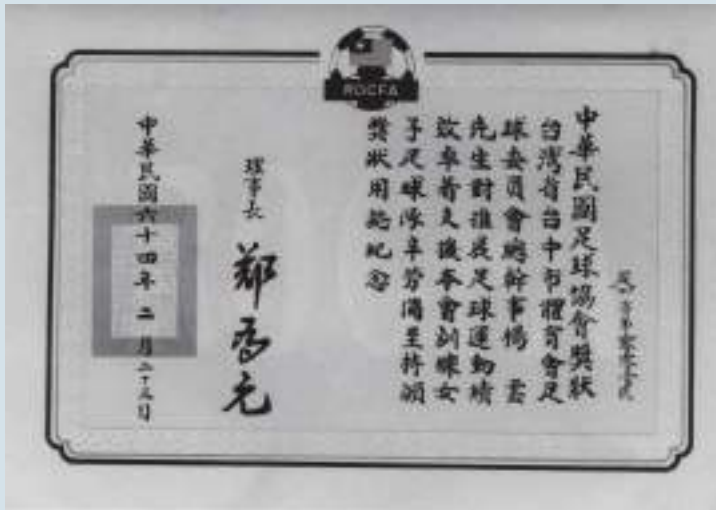 ROCFA
中華民國足球協會獎狀
台灣省台中市體育會足
球委員會總幹事楊 雲
先生對推展足球運動績
效卓著又獲本會訓練女
子足球隊辛勞備至特頒
獎狀用誌紀念
理事長 鄭為元
中華民國六十四年 二 月二十 日